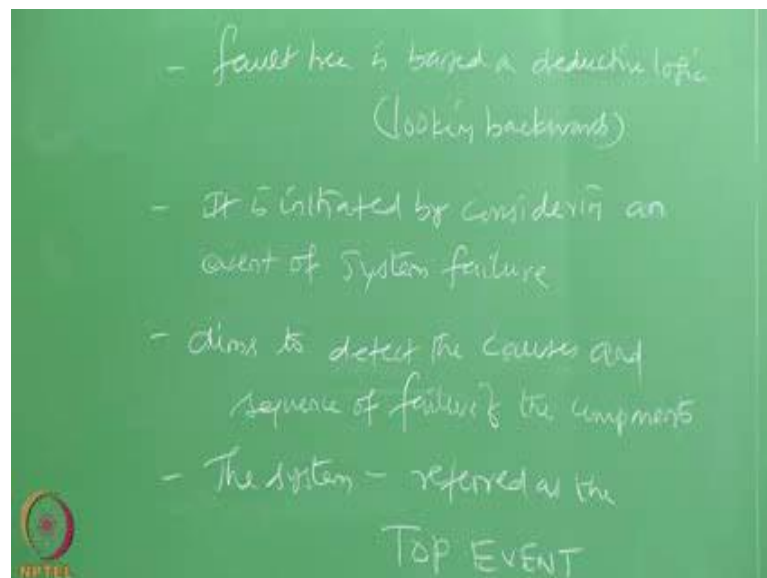 - fault tree is based on deductive logic
(looking backwards)
- It is initiated by considering an
event of system failure
- aims to detect the causes and
sequence of failure of the components
- The system - referred as the
TOP EVENT
NPTEL